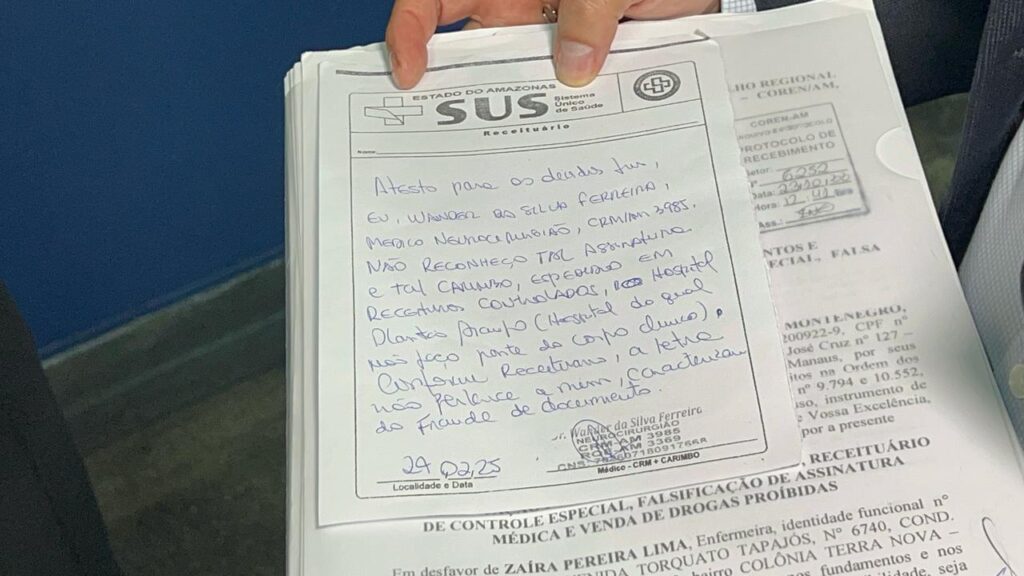 ESTADO DO AMAZONAS
SUS Sistema Único de Saúde
Receituário
Nome
Atesto para os devidos fins,
EU, WANDER DA SILVA FERREIRA,
MEDICO NEUROCIRURGIÃO, CRM/AM 3985,
NÃO RECONHEÇO TAL ASSINATURA
E TAL CARIMBO, EXPEDIDO EM
RECEITUÁRIOS CONTROLADOS, Hospital
Platão Araujo (Hospital do qual
não faço parte do corpo clinico).
Conforme Receituario, a letra
não pertence a mim, caracterizan
do Fraude de documento.
Dr. Wander da Silva Ferreira
NEUROCIRURGIÃO
CRM-AM 3985
3369
24 02,25
Localidade e Data
Médico - CRM + CARIMBO
LHO REGIONAL
– COREN/AM,
COREN-AM
PROTOCOLO DE
RECEBIMENTO
6252
Data:
Hora:
Ass.:
NTOS E
ECIAL, FALSA
MONTENEGRO,
200922-9, CPF nº
José Cruz nº 127 –
Manaus, por seus
itos na Ordem dos
nº 9.794 e 10.552,
uso, instrumento de
e Vossa Excelência,
por a presente
, RECEITUÁRIO
DE CONTROLE ESPECIAL, FALSIFICAÇÃO DE ASSINATURA
MÉDICA E VENDA DE DROGAS PROÍBIDAS
Em desfavor de ZAÍRA PEREIRA LIMA, Enfermeira, identidade funcional nº
ENIDA TORQUATO TAPAJÓS, Nº 6740, COND.
bairro COLÔNIA TERRA NOVA –
fundamentos e nos
seja